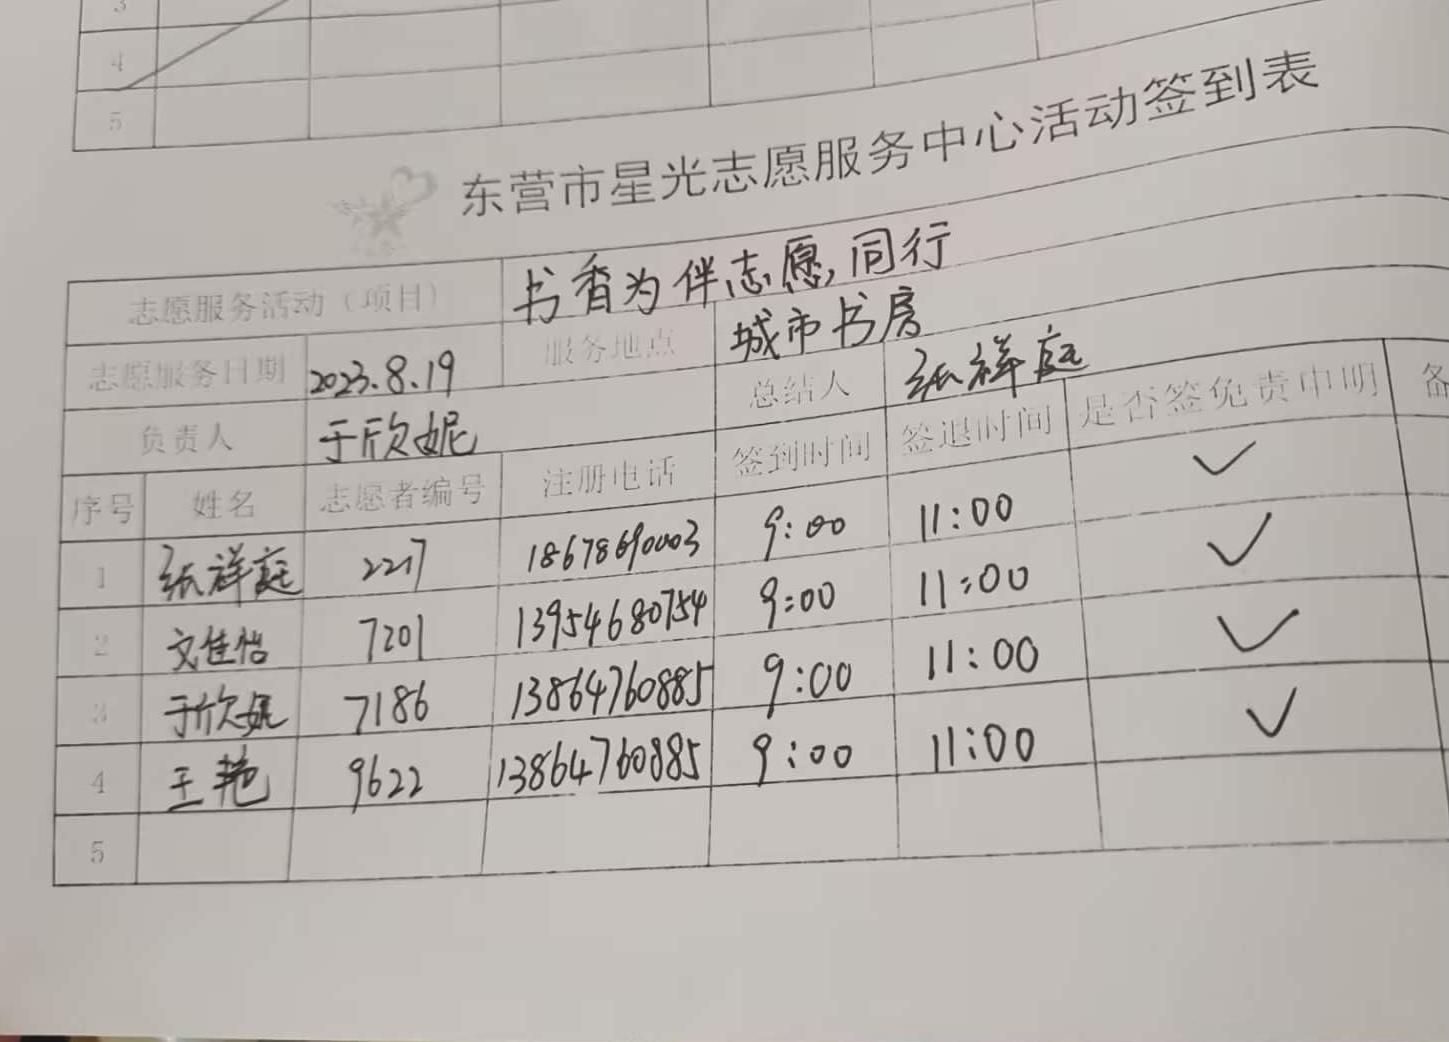 3
4
5
东营市星光志愿服务中心活动签到表
志愿服务活动（项目） 书香为伴志愿,同行
志愿服务日期 2023.8.19 服务地点 城市书房
负责人 于欣妮 总结人 张祥庭
序号 姓名 志愿者编号 注册电话 签到时间 签退时间 是否签免责申明 备
1 张祥庭 2217 18678690003 9:00 11:00 ✓
2 文佳怡 7201 13954680754 9:00 11:00 ✓
3 于欣妮 7186 13864760885 9:00 11:00 ✓
4 王艳 9622 13864760885 9:00 11:00 ✓
5